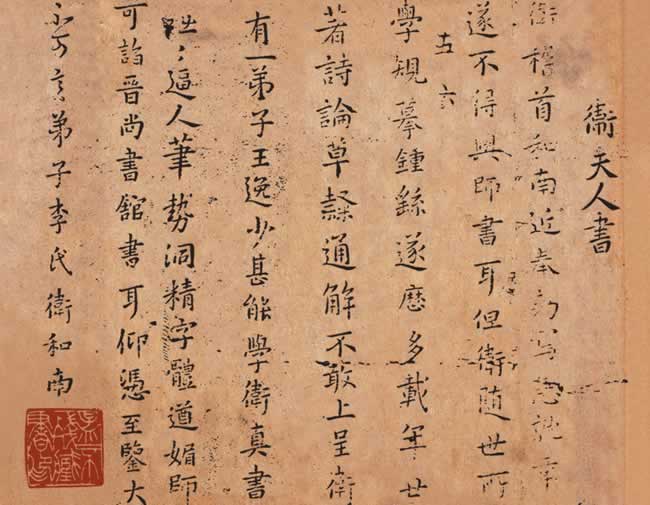 衛夫人書
衛稽首和南近奉勅寫急就章
遂不得與師書耳但衛隨世所
五六
學規摹鍾繇遂歷多載年廿
著詩論草隸通解不敢上呈衛
有一弟子王逸少甚能學衛真書
咄〻逼人筆勢洞精字體遒媚師
可詣晉尚書館書耳仰憑至鑒大
不可言弟子李氏衛和南